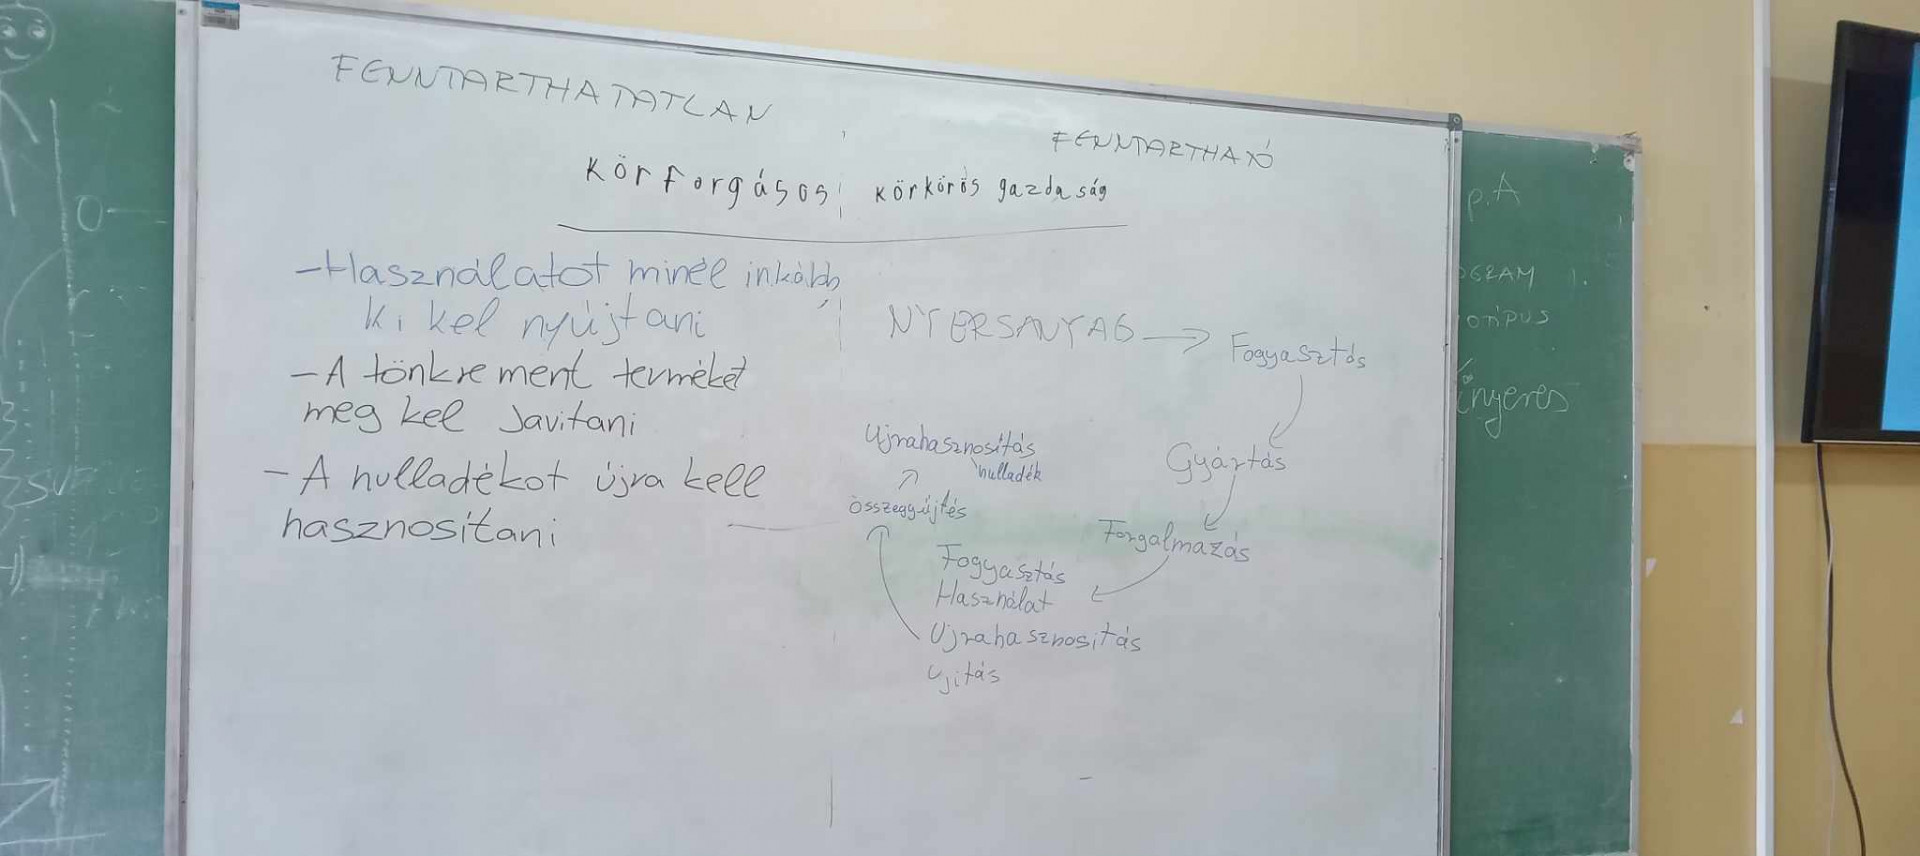 FENNTARTHATATLAN
FENNTARTHATÓ
Körforgásos, körkörös gazdaság
-Használatot minél inkább
ki kel nyújtani
-A tönkre ment terméket
meg kel Javitani
-A hulladékot újra kell
hasznosítani
NYERSANYAG → Fogyasztás
Gyártás
Forgalmazás
Fogyasztás
Használat
Újrahasznosítás
ujitás
összegyűjtés
Ujrahasznosítás
hulladék
p.A
OTÍPUS